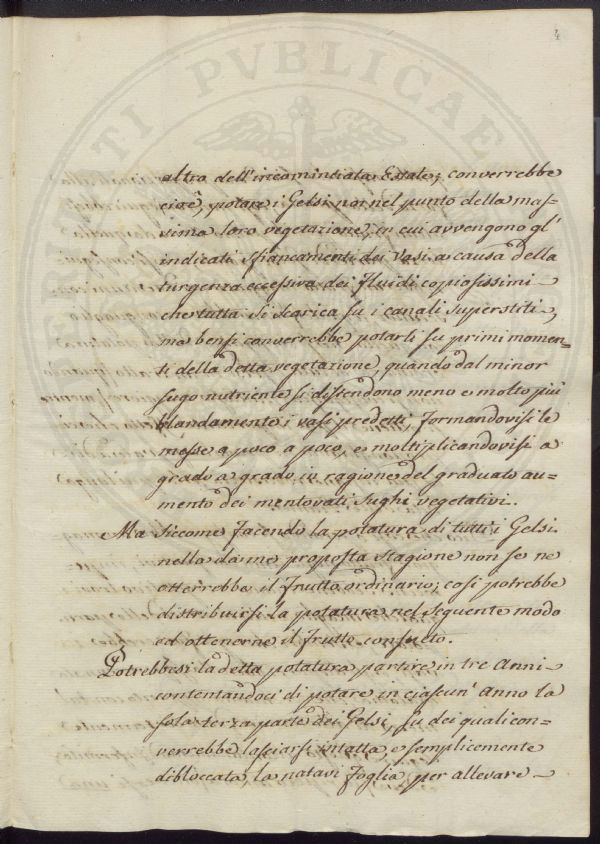 4
altra dell'incominciata Estate; converrebbe
cioè, potare i Gelsi non nel punto della mas-
sima loro vegetazione, in cui avvengono gl'
indicati sfiancamenti dei Vasi a causa della
turgenza eccessiva dei fluidi copiosissimi
che tutta si scarica su i canali superstiti,
ma bensi converrebbe potarli su primi momen-
ti della detta vegetazione, quando dal minor
sugo nutriente si distendono meno e molto più
blandamente i vasi predetti formandovisi le
messe a poco a poco, e moltiplicandovisi a
grado a grado in ragione del graduato au-
mento dei mentovati Sughi vegetativi.
Ma siccome facendo la potatura di tutti i Gelsi
nella da me proposta stagione non se ne
otterrebbe il frutto ordinario; così potrebbe
distribuirsi la potatura nel seguente modo
ed ottenerne il frutto consueto.
Potrebbesi la detta potatura partire in tre Anni
contentandoci di potare in ciascun' Anno la
sola terza parte dei Gelsi, su dei quali con-
verrebbe lasciarsi intatta, e semplicemente
disbloccata, la natavi foglia per allevare
PVBLICAE